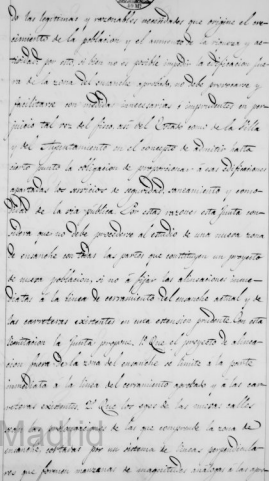 do las legitimas y razonables necesidades que origine el cre-
cimiento de la poblacion y el aumento de la riqueza y ac-
tividad, por esto, si bien no es posible impedir la edificacion fue-
ra de la zona del ensanche aprobado, no debe provocarse y
facilitarse con medidas innecesarias é imprudentes en per-
juicio tal vez del fisco asi del Estado como de la Villa
y del Ayuntamiento en el concepto de admitir hasta
cierto punto la obligacion de proporcionar á esas edificaciones
apartadas los servicios de seguridad, saneamiento y como-
didad de la via publica. Por estas razones esta Junta con-
sidera que no debe procederse al estudio de una nueva zona
de ensanche con todas las partes que constituyen un proyecto
de nueva poblacion, si no á fijar las alineaciones inme-
diatas á la linea de cerramiento del ensanche actual y de
las carreteras existentes en una estension prudente. Con esta
limitacion la Junta propone. 1º Que el proyecto de alinea-
cion fuera de la zona del ensanche se limite á la parte
inmediata á la linea del cerramiento aprobado y á las car-
reteras existentes. 2º Que los ejes de las nuevas calles
sean prolongaciones de las que comprende la zona de
ensanche cortadas por un sistema de lineas perpendicula-
res que formen manzanas de magnitudes análogas á las que
Madrid